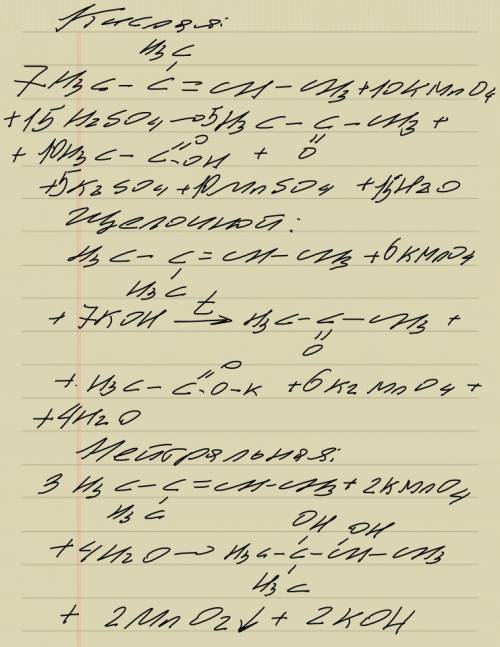 Кислая:
H3C
7H3C – C = CH – CH3 + 10KMnO4
+ 15H2SO4 → 5H3C – C – CH3 +
O
+ 10H3C – C = O – OH + O
+ 5K2SO4 + 10MnSO4 + 15H2O
Щелочной:
H3C – C = CH – CH3 + 6KMnO4
H3C
+ 7KOH t → H3C – C – CH3 +
O
O
+ H3C – C = O – K + 6K2MnO4 +
+ 4H2O
Нейтральная:
3 H3C – C = CH – CH3 + 2KMnO4
H3C
OH OH
+ 4H2O → H3C – C – CH – CH3
H3C
+ 2MnO2↓ + 2KOH